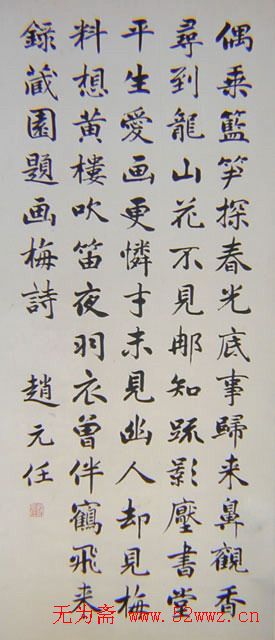 偶乘籃笋探春光底事歸来鼻觀香
尋到龍山花不見那知疏影壓書堂
平生愛画更憐才未見幽人却見梅
料想黄樓吹笛夜羽衣曾伴鶴飛来
錄蔵園題画梅詩 趙元任
无为斋 www.52wwz.cn